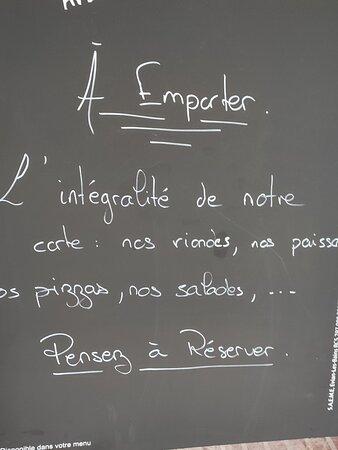 À Emporter.
L'intégralité de notre
carte : nos viandes, nos poisso
os pizzas, nos salades, ...
Pensez à Réserver.
Disponible dans votre menu